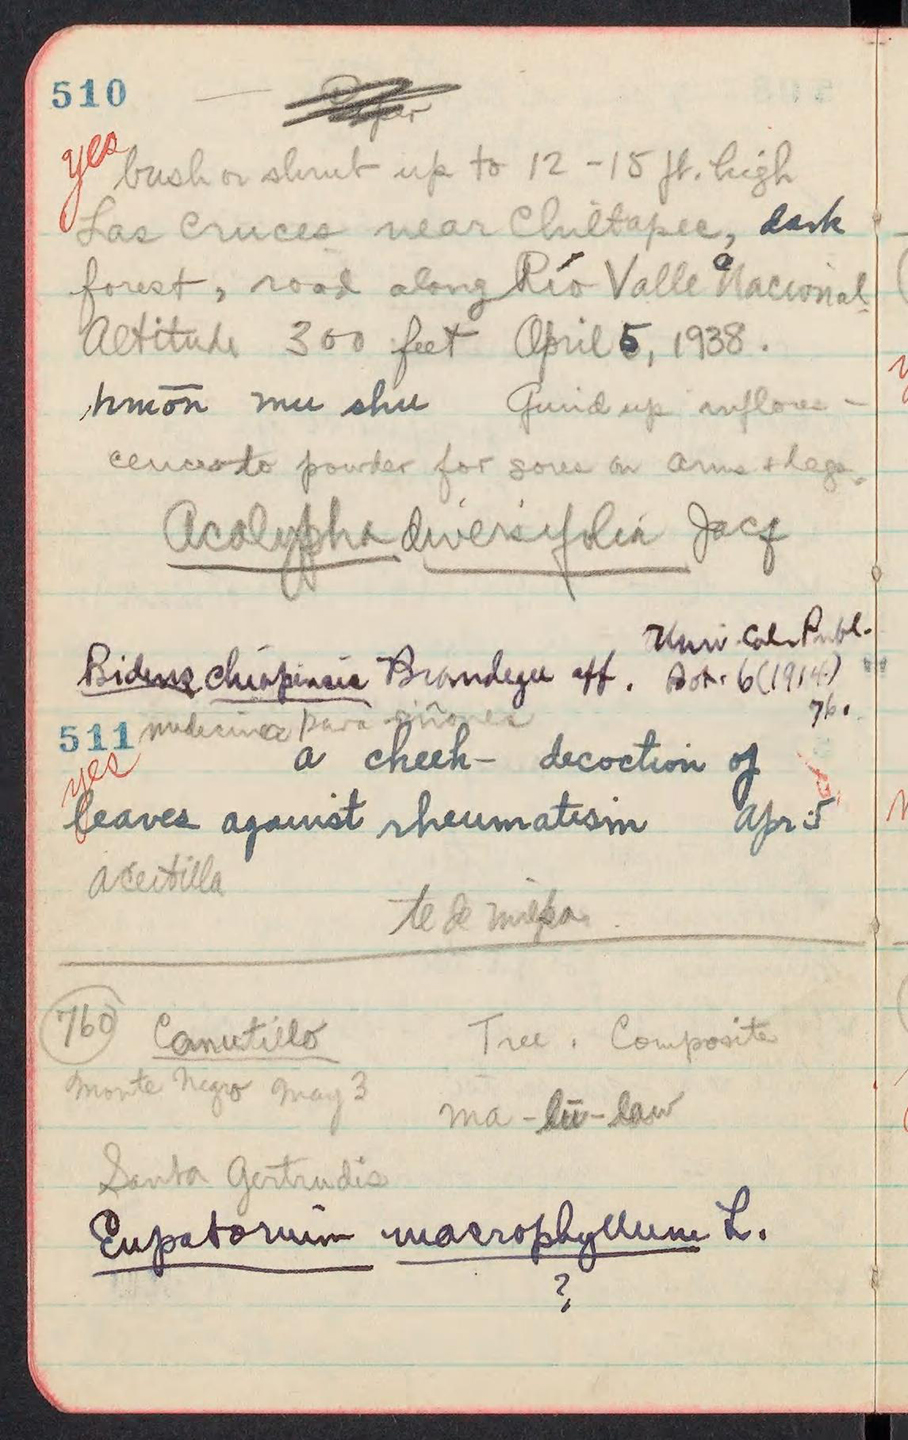 510
yes
bush or shrub up to 12-15 ft. high
Las Cruces near Chiltapec, dark
forest, road along Río Valle Nacional
Altitude 300 feet April 5, 1938.
hmōn mu shu Grind up inflores-
cences to powder for sores on arms & legs.
Acalypha diversifolia Jacq
Univ. Cal. Publ.
Bidens chiapensis Brandegee aff. Bot. 6 (1914)
76.
medicina para riñones
511
yes a cheek- decoction of
leaves against rheumatism Apr 5
aceitilla
te de milpa
760 Canutillo Tree. Composite
Monte Negro May 3
ma-lū-law
Santa Gertrudis
Eupatorium macrophyllum L.
?